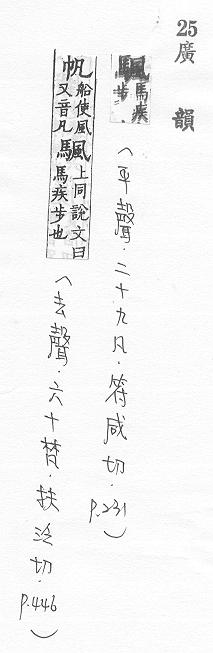 25廣韻
颿馬疾步
(平聲.二十九凡.符咸切.p.231)
帆船使風又音凡颿上同說文曰馬疾步也
(去聲.六十梵.扶泛切.p.446)